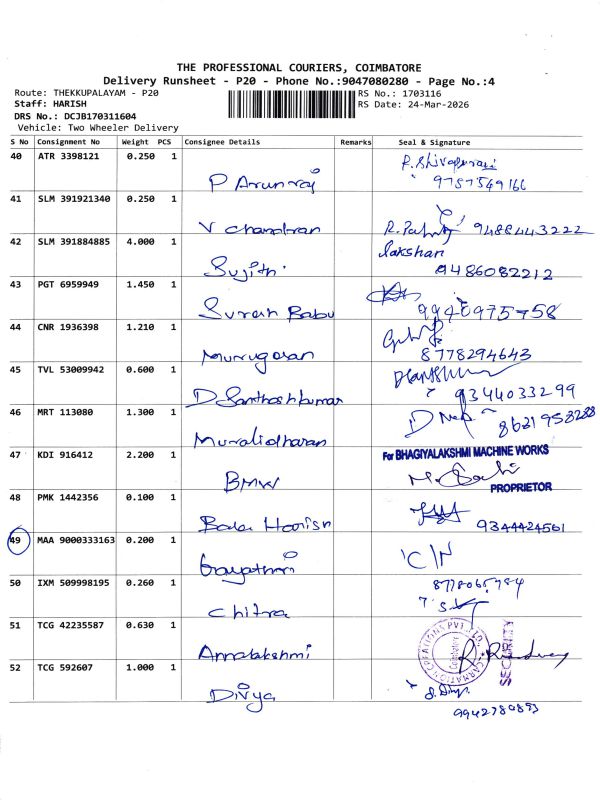 THE PROFESSIONAL COURIERS, COIMBATORE
Delivery Runsheet - P20 - Phone No.:9047080280 - Page No.:4
Route: THEKKUPALAYAM - P20 RS No.: 1703116
Staff: HARISH RS Date: 24-Mar-2026
DRS No.: DCJB170311604
Vehicle: Two Wheeler Delivery
S No Consignment No Weight PCS Consignee Details Remarks Seal & Signature
40 ATR 3398121 0.250 1
P Arunraj
9787549166
41 SLM 391921340 0.250 1
V chandran 9488443222
42 SLM 391884885 4.000 1 lakshan
Sujith 9486082212
43 PGT 6959949 1.450 1
Suresh Babu
44 CNR 1936398 1.210 1
Murugasan 8778294643
45 TVL 53009942 0.600 1
D Santhoshkumar 9344033299
46 MRT 113080 1.300 1
Muralidharan
47 KDI 916412 2.200 1 For BHAGIYALAKSHMI MACHINE WORKS
BMW PROPRIETOR
48 PMK 1442356 0.100 1
Bala Harish 9344424561
49 MAA 9000333163 0.200 1 C/N
Gayathri
50 IXM 509998195 0.260 1
Chitra
51 TCG 42235587 0.630 1
Annalakshmi SECURITY
52 TCG 592607 1.000 1
Divya
9942780893